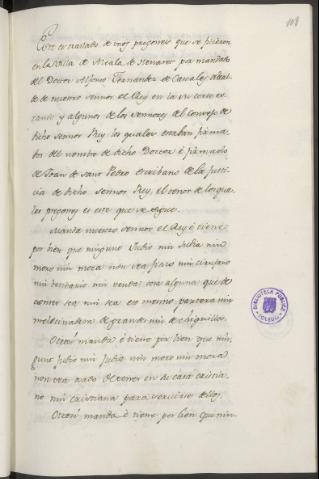 108
Este es traslado de unos pregones que se ficieron
en la Villa de Alcala de Henares por mandado
del Doctor Alfonso Fernandez de Cascales alcal-
de de nuestro sennor el Rey en la su corte es-
tando y algunos de los sennores del consejo de
dicho sennor Rey, los quales estaban firma-
dos del nombre de dicho Doctor é firmados
de Joan de Sant Pedro escribano de la Justi-
cia de dicho sennor Rey, el tenor de los qua-
les pregones es este que se sigue.
Manda nuestro sennor el Rey é tiene
por bien que ninguno Judio nin Judia nin
moro nin mora non sea fisico nin cirujano
nin boticario nin venda cosa alguna que de
comer sea nin sea eso mesmo partera nin
melecinadera de grandes nin de chiquillos.
Otrosi manda é tiene por bien que nin-
guno Judio nin Judia nin moro nin mora
non sea osado de tener en su casa cristia-
no nin cristiana para servicio dellos.
Otrosi manda é tiene por bien que nin-
BIBLIOTECA PÚBLICA
TOLEDO